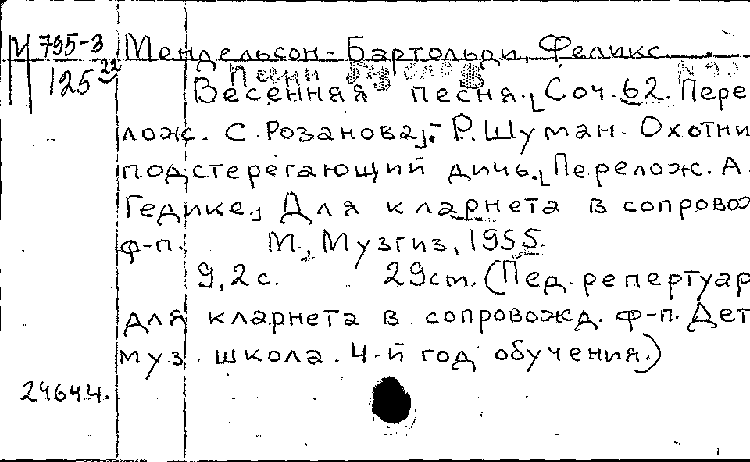 М 795-3 Мендельсон-Бартольди, Феликс
125 22
Весенняя песня. [Соч. 62. Пере
лож. С. Розанова]. - Р. Шуман. Охотни
подстерегающий дичь. [Перелож. А.
Гедике.] Для кларнета в сопровож
ф-п. М., Музгиз, 1955.
9, 2 с. 29 cm. (Пед. репертуар
для кларнета в сопровожд. ф-п. Дет
муз. школа. 4-й год обучения.)
24644.